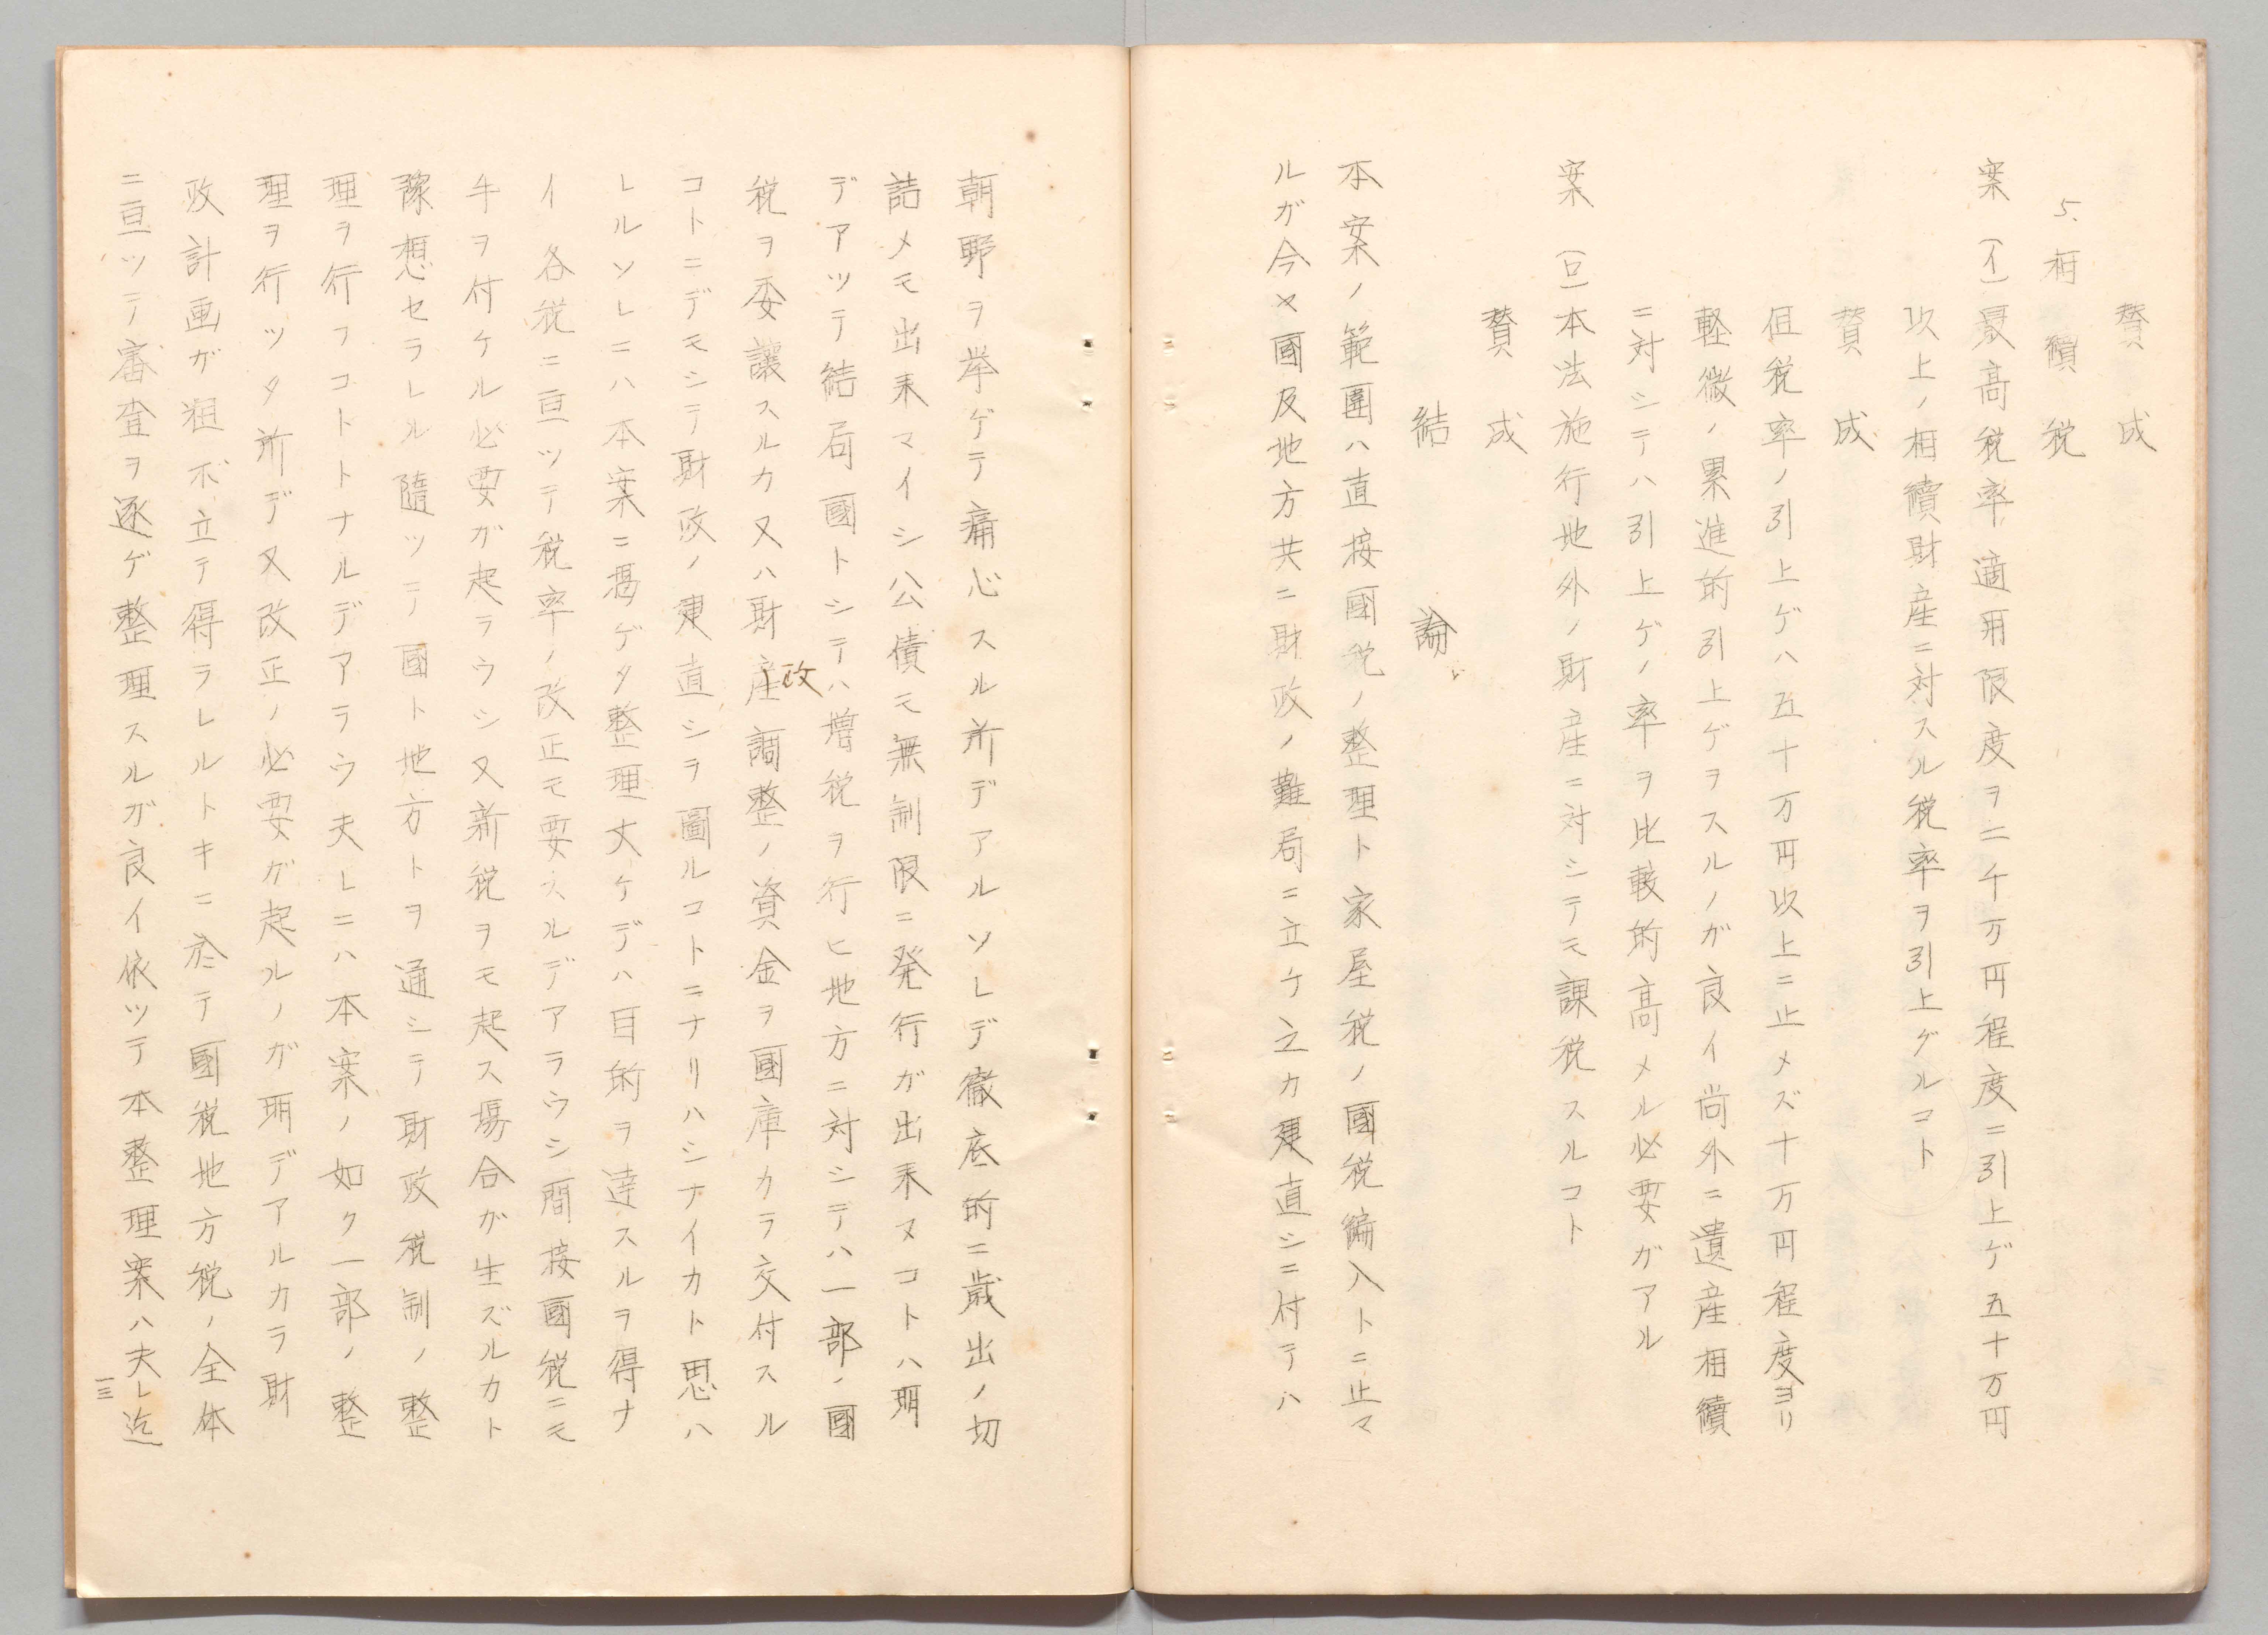 賛成
5. 相續税
案 (イ)最高税率適用限度ヲ二千万円程度ニ引上ゲ五十万円
以上ノ相續財産ニ対スル税率ヲ引上グルコト
賛成
但税率ノ引上ゲハ五十万円以上ニ止メズ十万円程度ヨリ
軽微ノ累進的引上ゲヲスルノガ良イ尚外ニ遺産相續
ニ対シテハ引上ゲノ率ヲ比較的高メル必要ガアル
案 (ロ)本法施行地外ノ財産ニ対シテモ課税スルコト
賛成
結論
本案ノ範圍ハ直接國税ノ整理ト家屋税ノ國税編入トニ止マ
ルガ今ヤ國及地方共ニ財政ノ難局ニ立ケ之カ建直シニ付テハ
朝野ヲ挙ゲテ痛心スル所デアルソレデ徹底的ニ歳出ノ切
詰メモ出来マイシ公債モ無制限ニ発行ガ出来ヌコトハ明
デアツテ結局國トシテハ増税ヲ行ヒ地方ニ対シテハ一部ノ國
税ヲ委譲スルカ又ハ財産調整ノ資金ヲ國庫カラ交付スル
政
コトニデモシテ財政ノ建直シヲ圖ルコトニナリハシナイカト思ハ
レルソレニハ本案ニ掲ゲタ整理丈ケデハ目的ヲ達スルヲ得ナ
イ各税ニ亘ツテ税率ノ改正モ要スルデアラウシ間接國税ニモ
手ヲ付ケル必要が起ラウシ又新税ヲモ起ス場合が生ズルカト
豫想セラレル隨ツテ國ト地方トヲ通シテ財政税制ノ整
理ヲ行フコトトナルデアラウ夫レニハ本案ノ如ク一部ノ整
理ヲ行ツタ所デ又改正ノ必要ガ起ルノガ明デアルカラ財
政計画が狙ボ立テ得ラレルトキニ於テ國税地方税ノ全体
ニ亘ツテ審査ヲ逐ゲ整理スルガ良イ依ツテ本整理案ハ夫レ迄
一三